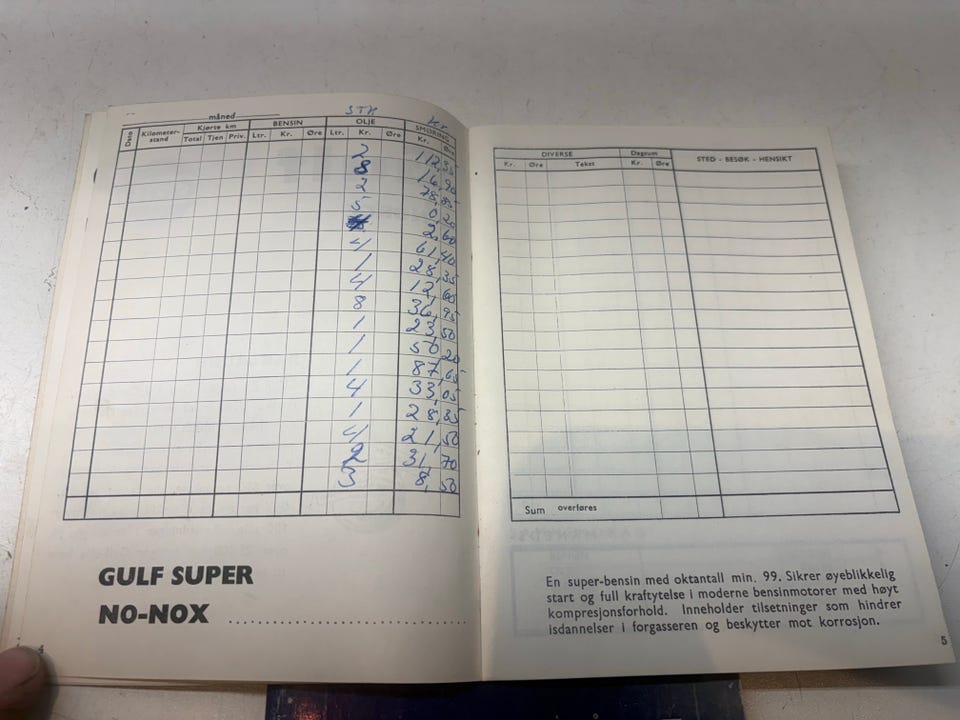 måned STK Kr
Dato Kilometer-stand Kjørte km BENSIN OLJE SMØRING
Total Tjen Priv. Ltr. Kr. Øre Ltr. Kr. Øre Kr. Øre
2 112,35
8 16,90
2 78,85
5,- 0,20
2,60
4 61,40
1 28,35
4 12,60
8 36,95
1 23,50
1 50,20
1 87,65
4 33,05
1 28,35
4 21,50
2 31,70
3 8,50
GULF SUPER
NO-NOX
4
DIVERSE Dagsum STED - BESØK - HENSIKT
Kr. Øre Tekst Kr. Øre
Sum overføres
En super-bensin med oktantall min. 99. Sikrer øyeblikkelig
start og full kraftytelse i moderne bensinmotorer med høyt
kompresjonsforhold. Inneholder tilsetninger som hindrer
isdannelser i forgasseren og beskytter mot korrosjon.
5